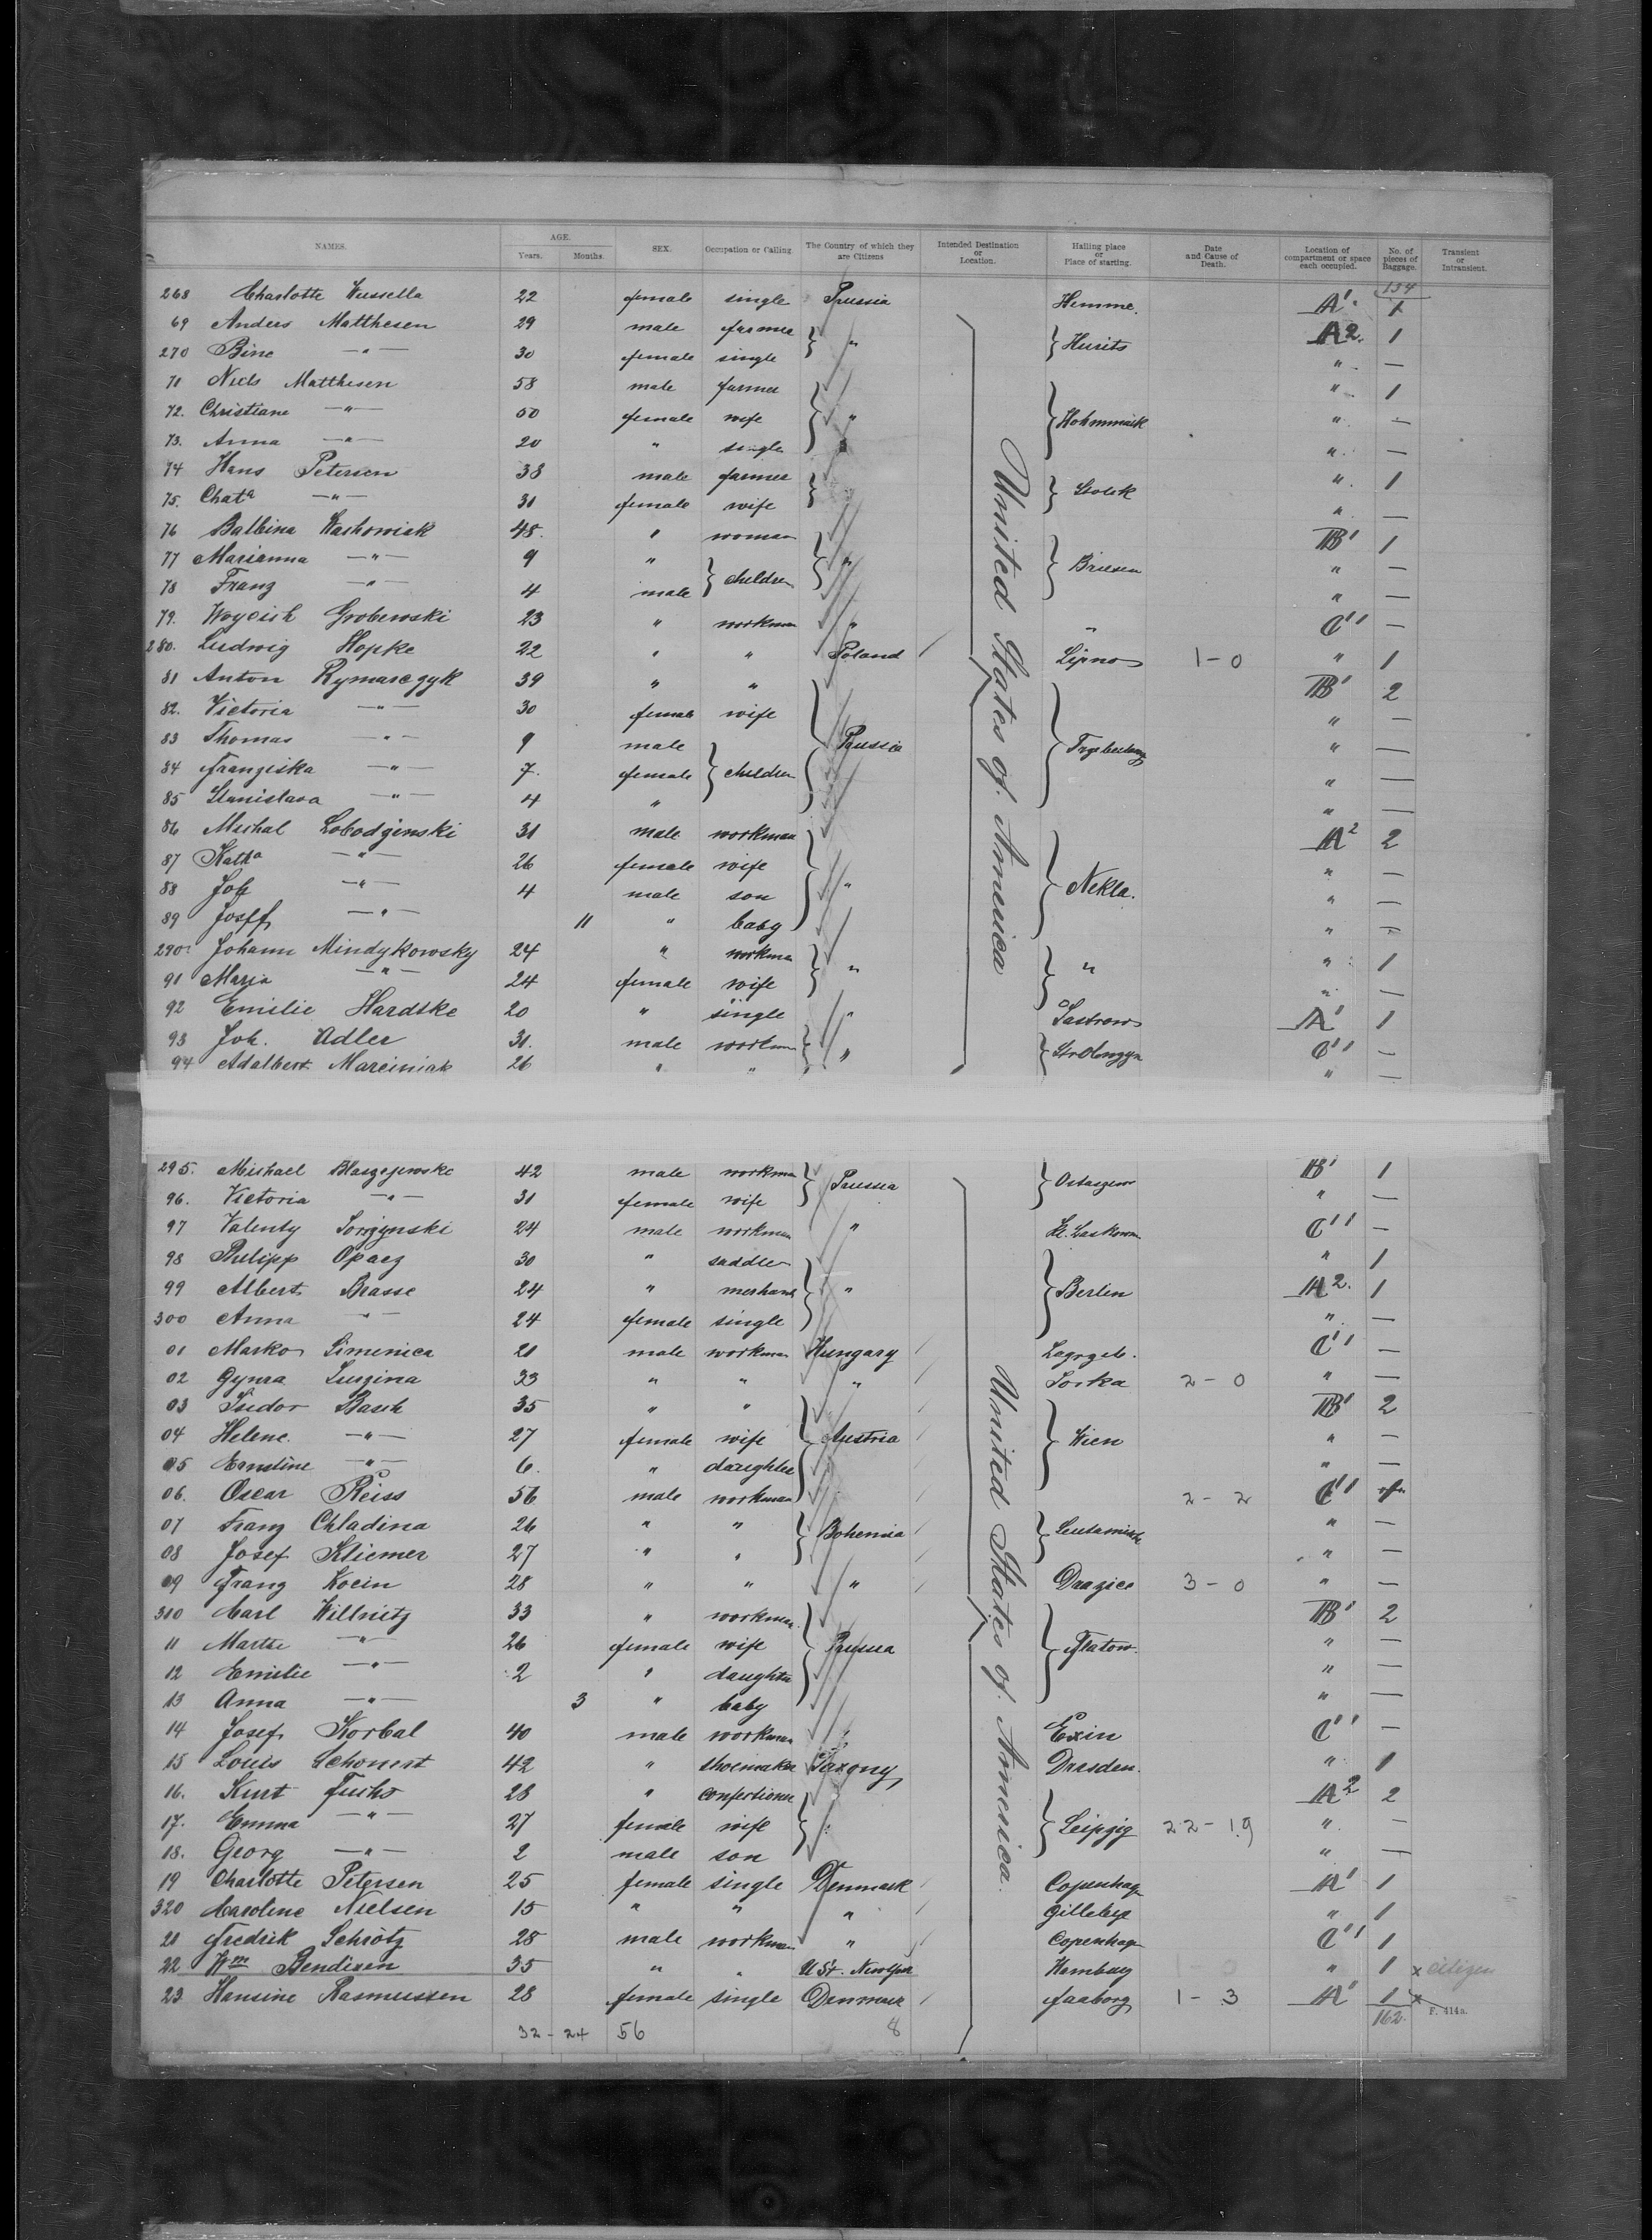 NAMES. AGE. Years. Months. SEX. Occupation or Calling. The Country of which they are Citizens Intended Destination or Location. Hailing place or Place of starting. Date and Cause of Death. Location of compartment or space each occupied. No. of pieces of Baggage. Transient or Intransient.
134
268 Charlotte Wussella 22 female single Prussia Hemme. A' 1
69 Anders Matthesen 29 male farmer " Husits A2. 1
270 Bine —"— 30 female single " —
71 Niels Matthesen 58 male farmer " 1
72. Christiane —"— 50 female wife " Hohnmark " —
73. Anna —"— 20 " single " —
74 Hans Petersen 38 male farmer Stolek " 1
75. Chata —"— 31 female wife " —
76 Balbina Washowiak 48. " woman B' 1
77 Marianna —"— 9 " children " Briesen " —
78 Franz —"— 4 male " —
79. Woyciech Grobewski 23 " workman " " C'' —
280. Ludwig Hopke 22 " " Poland Lipno 1-0 " 1
81 Anton Rymarczyk 39 " " B' 2
82. Victoria —"— 30 female wife " —
83 Thomas —"— 9 male Prussia " —
84 Franziska —"— 7. female children " —
85 Stanislava —"— 4 " " —
86 Michal Lobodzinski 31 male workman A2 2
87 Katha —"— 26 female wife " —
88 Joh —"— 4 male son " Nekla. " —
89 Josef —"— 11 " baby " —
290 Johann Mindykowsky 24 " workman " " " 1
91 Maria —"— 24 female wife " —
92 Emilie Hardtke 20 " single " Jastrow A' 1
93 Joh. Adler 31. male workman " C'' —
94 Adalbert Marciniak 26 " " " —
United States of America
295. Michael Blaszejewski 42 male workman Prussia B' 1
96. Victoria —"— 31 female wife " —
97 Valenty 24 male workman " C'' —
98 Philipp Opacz 30 " saddler " 1
99 Albert Brasse 24 " merchant " Berlin A2. 1
300 Anna —"— 24 female single " —
01 Marko Simenica 21 male workman Hungary C'' —
02 Gyura 33 " " " Sorka 2-0 " —
03 Isidor Basch 35 " " B' 2
04 Helene. —"— 27 female wife Austria Wien " —
05 Ernstine —"— 6. " daughter " —
06. Oscar Reiss 56 male workman 2-2 C''
07 Franz Chladina 26 " " Bohemia " —
08 Josef Kliemer 27 " " " —
09 Franz Kocin 28 " " " Drazice 3-0 " —
310 Carl Willnitz 33 " workman B' 2
11 Marthe —"— 26 female wife Prussia Flatow. " —
12 Emilie —"— 2 " daughter " —
13 Anna —"— 3 " baby " —
14 Josef Korbal 40 male workman " Exin C'' —
15 Louis Schonert 42 " shoemaker Saxony Dresden. " 1
16. Kurt Fuchs 28 " confectioner A2 2
17. Emma —"— 27 female wife " Leipzig 22-19 " —
18. Georg —"— 2 male son " —
19 Charlotte Petersen 25 female single Denmark Copenhag A' 1
320 Caroline Nielsen 15 " " " Gilleleje " 1
21 Fredrik Schrötz 28 male workman " Copenhag C'' 1
22 Wm Bendixen 35 " " U St. NewYork Hamburg 1-0 " 1 x citizen
23 Hansine Rasmussen 28 female single Denmark Faaborg 1-3 A' 1 x
United States of America.
32-24 56 8 162. F. 414a.